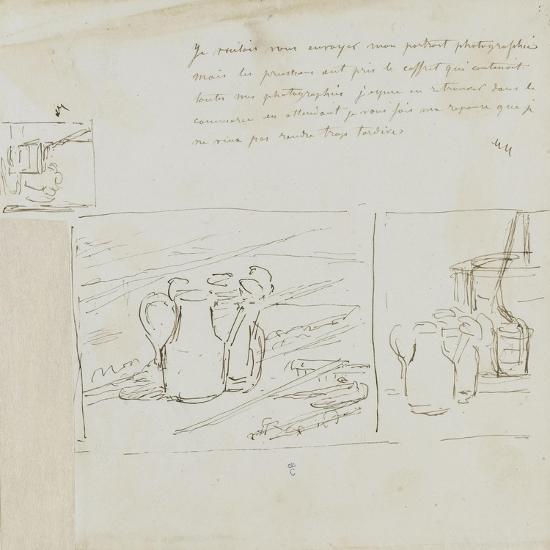 Je voulais vous envoyer mon portrait photographié
mais les prussiens ont pris le coffret qui contenait
toutes mes photographies j'espère en retrouver dans le
commerce en attendant je vous fais ma reponse que je
ne veux pas rendre trop tardive